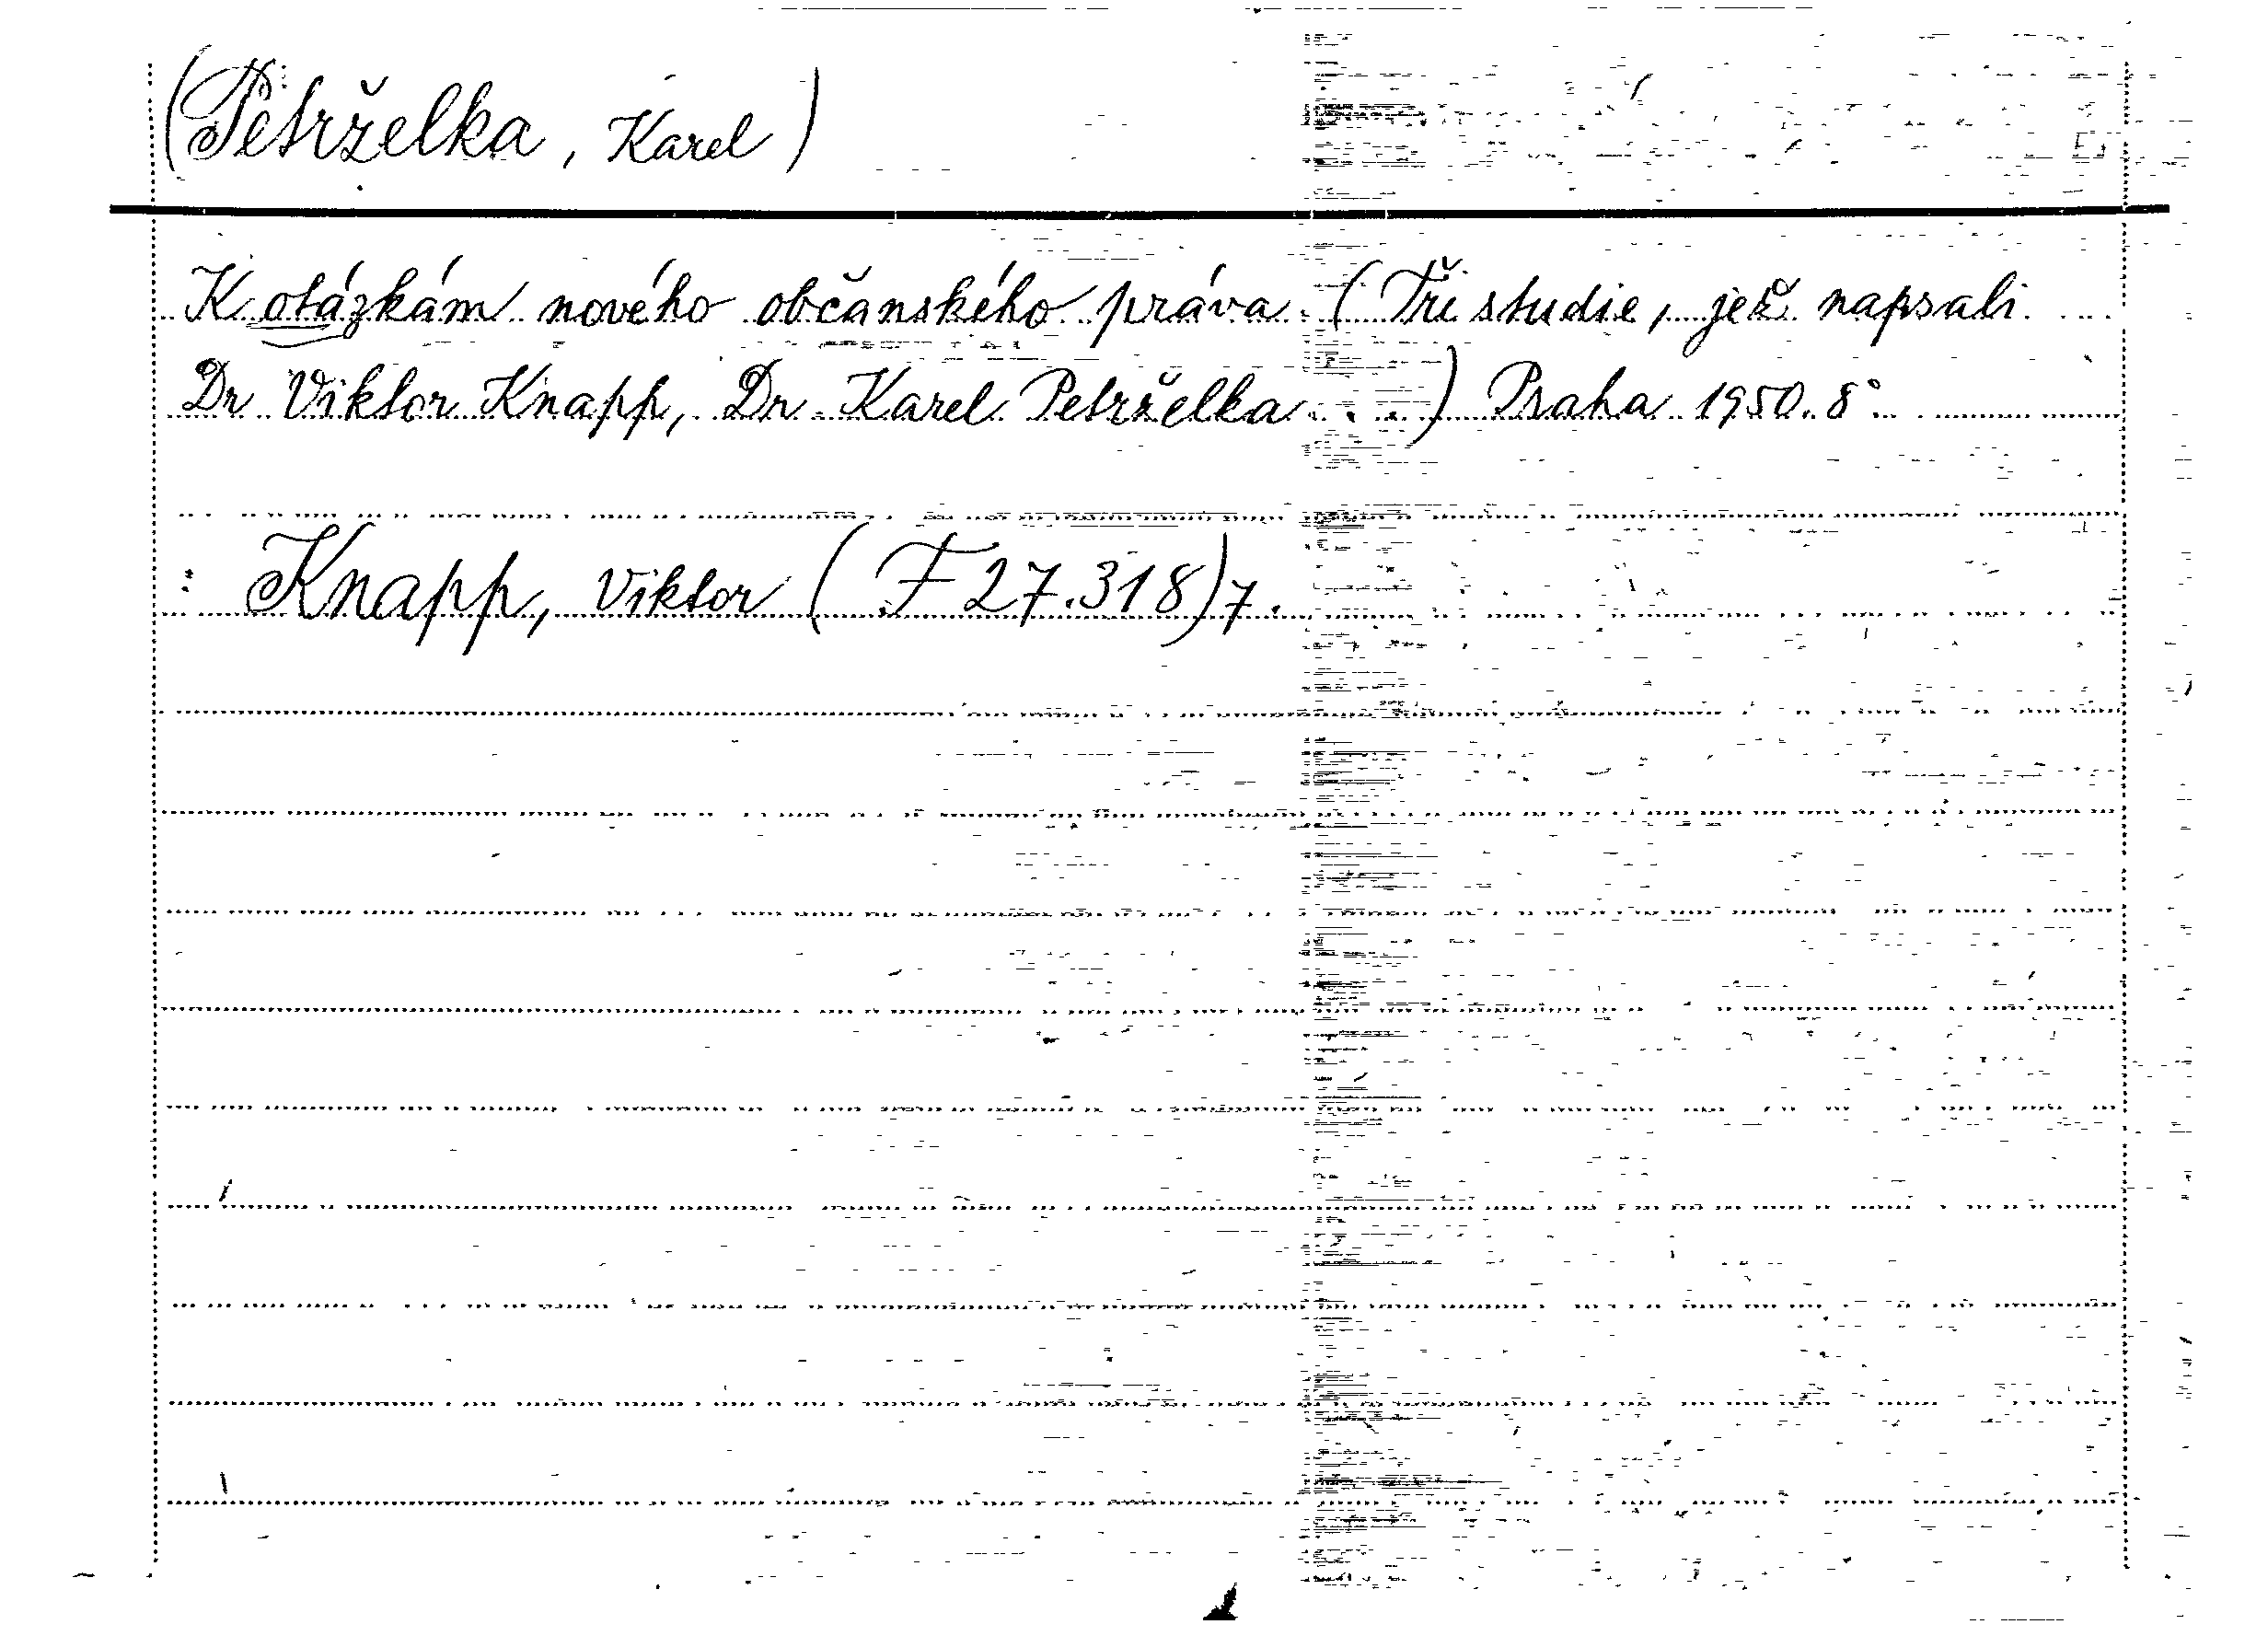 (Petrželka, Karel)
K otázkám nového občanského práva. (Tři studie, jež napsali
Dr Viktor Knapp, Dr Karel Petrželka...) Praha 1950. 8°.
: Knapp, Viktor (F 27.318)7.